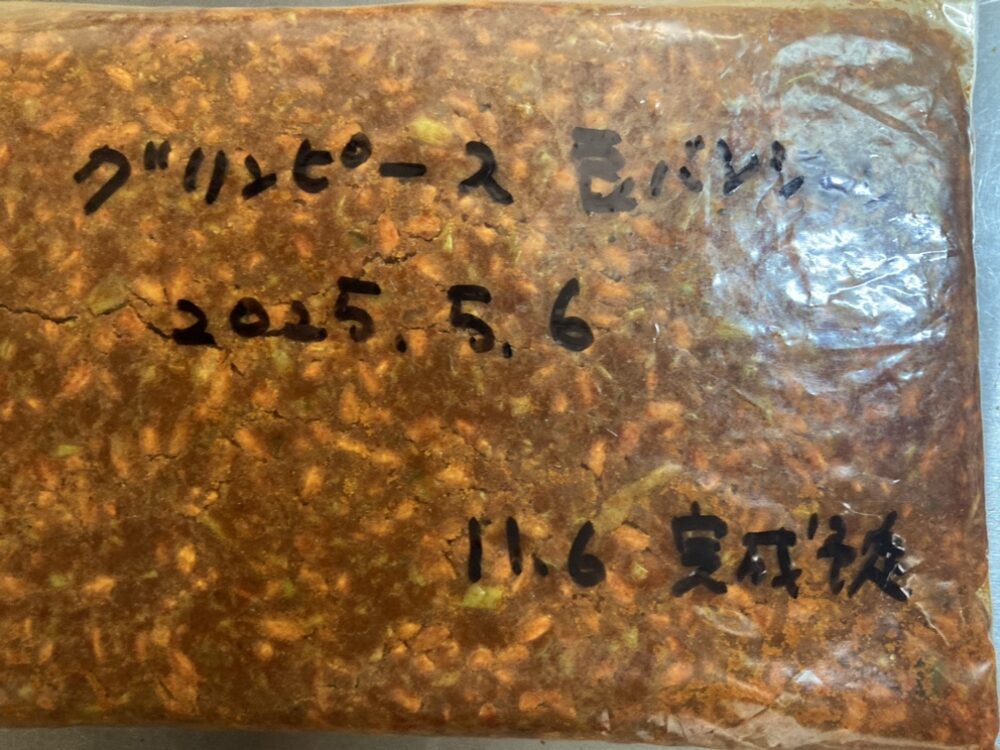 グリンピース 豆バンジャン
2025.5.6
11.6 完成予定